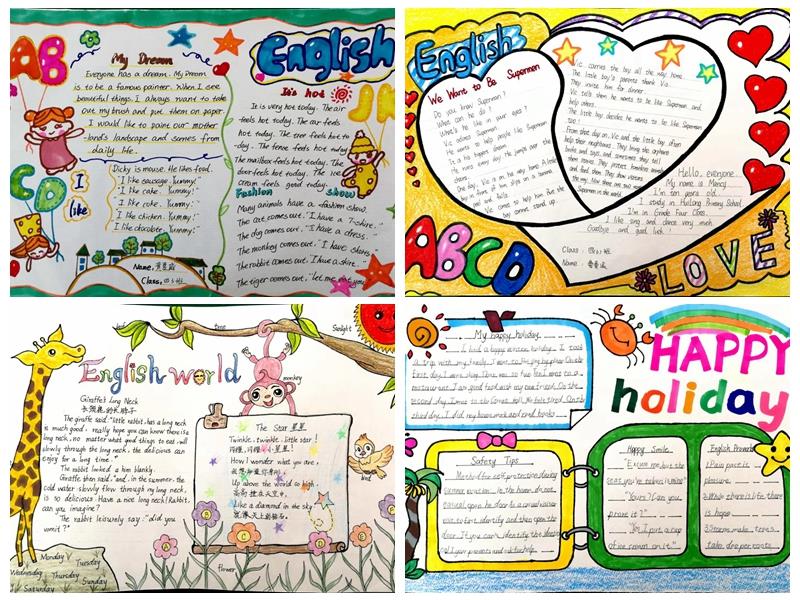 AB
CD
My Dream
Everyone has a dream. My Dream
is to be a famous painter. When I see
beautiful things, I always want to take
out my brush and put them on paper
I would like to paint our mother
-land's landscape and scenes from
daily life.
I
like
Dicky is mouse. He likes food.
I like sausage. Yummy!
I like cake. Yummy!
I like coke. Yummy!
I like chicken. Yummy!
I like chocolate. Yummy!
Name:
Class: 四(3)班
English
It's hot
It is very hot today. The air
feels hot today. The car feels
hot today. The tree feels hot to
-day. The fence feels hot today
The mailbox feels hot today. The
door feels hot today. The ice
cream feels good today.
Fashion Show
Many animals have a fashion show.
The cat comes out. "I have a T-shirt."
The dog comes out. "I have a dress."
The monkey comes out. "I have shoes
The rabbit comes out. "I have a skirt."
The tiger comes out, "let me eat you
English
We Want to Be Superman
Do you know Superman?
What can he do?
What's he like in your eyes?
Vic adores Superman.
He wants to help people like Superman
It is his biggest dream.
He runs every day. He jumps over the
One day, Vic is on his way home. A little
boy in front of him slips on a banana
peel and falls.
Vic comes to help him. But the
boy cannot stand up.
Vic carries the boy all the way home.
The little boy's parents thank Vic.
They invite him for dinner.
Vic tells them he wants to be like Superman and
help others.
The little boy decides he wants to be like Superman
too!
From that day on, Vic and the little boy often
help their neighbours. They bring the orphans
books and toys, and sometimes they tell
them stories. They protect homeless animals
and feed them. They show visitors
the way. Now there are two
Superman in the world.
Hello, everyone.
My name is Mancy
I'm ten years old.
I study in Huilong Primary School
I'm in Grade Four Class
I like sing and dance very much
Goodbye and good luck!
Class: 四(3)班
Name:
ABCD
LOVE
leaf
tree
Sunlight
English world
monkey
Giraffe's Long Neck
长颈鹿的长脖子
The giraffe said: "little rabbit, has a long neck
is much good, really hope you can know there is a
long neck, no matter what good things to eat, will
slowly through the long neck, the delicious can
enjoy for a long time."
The rabbit looked a him blankly.
Giraffe then said, "and, in the summer, the
cold water slowly flow through my long neck,
is so delicious. Have a nice long neck! Rabbit,
can you imagine?"
The rabbit leisurely say: "did you
vomit?"
The Star 星星
Twinkle, twinkle, little star!
闪耀,闪耀,小星星!
How I wonder what you are,
我想知道你是什么
Up above the world so high
高高挂在天空中,
Like a diamond in the sky
bird
A
B
C
D
E
flower
Monday
Tuesday
Wednesday
Thursday
Sunday
Saturday
My happy holiday
I had a happy winter holiday. I took
a trip with my family. I went to
first day, I went
restaurant. I ate good food with my
second day, I went to the Great Wall. We felt tired. On the
third day, I did my homework and read books
HAPPY
holiday
Safety Tips
Happy Smile
"Excuse me, but the
seat you're taking is mine."
"Yours? Can you
prove it?"
"Yes, I put a cup
of ice cream on it."
English Proverb
1. Pain past is
pleasure.
2. While there is life, there
is hope.
3. Storms make trees
take deeper roots.